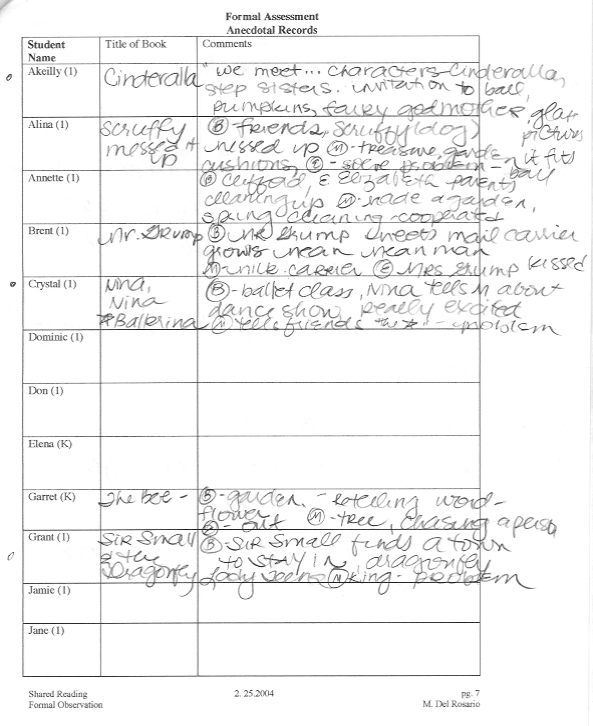 Formal Assessment
Anecdotal Records
Student Name Title of Book Comments
Akeilly (1) Cinderalla "we meet... characters-Cinderalla,
step sisters. invitation to ball,
pumpkins, fairy godmother, glass
pictures
Alina (1) Scruffy messed it up (B) friends, Scruffy (dog)
messed up (M)-treasure, garden, it fits
cushions, (E)-solve problem - ball
Annette (1) (B) Clifford, & Elizabeth parents
cleaning up (M)-made a garden,
spring cleaning-cooperated
Brent (1) Mr. Grump (B) Mr Grump meets mail carrier
grows mean mean man
(M)-milk carrier (E) Mrs Grump kissed
Crystal (1) Nina, Nina *Ballerina (B)-ballet class, Nina tells M about
dance show, really excited
(M) tells friends - problem
Dominic (1)
Don (1)
Elena (K)
Garret (K) The Bee - (B)-garden. - retelling word-
flower
- out (M)-tree, chasing a person
Grant (1) Sir Small & the Dragonfly (B)-Sir Small finds a town
to stay in, dragonfly
Lady Teena (M) king - problem
Jamie (1)
Jane (1)
Shared Reading 2. 25.2004 pg. 7
Formal Observation M. Del Rosario